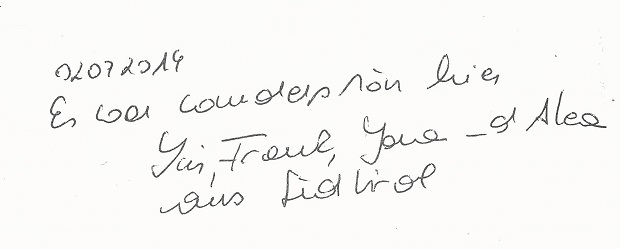 02072014
Es war wunderschön hier
Yuri, Frank, Yana und Alea
aus Südtirol